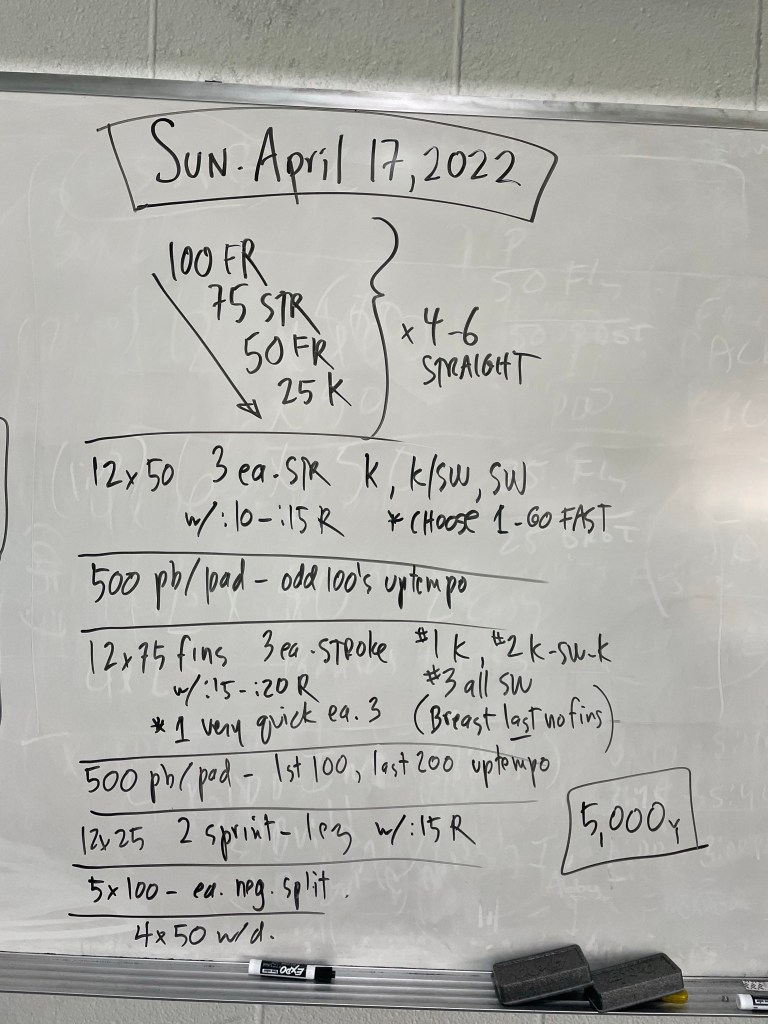 SUN. April 17, 2022
100 FR
75 STR
50 FR
25 K
x 4-6
STRAIGHT
12x50 3 ea. STR K, K/SW, SW
w/:10-:15 R *CHOOSE 1-GO FAST
500 pb/pad - odd 100's uptempo
12x75 fins 3 ea. STROKE #1 K, #2 K-SW-K
w/:15-:20 R #3 all SW
*1 very quick ea. 3 (Breast last no fins)
500 pb/pad - 1st 100, last 200 uptempo
12x25 2 sprint-1ez w/:15 R
5,000y
5x100 - ea. neg. split.
4x50 w/d.
EXPO